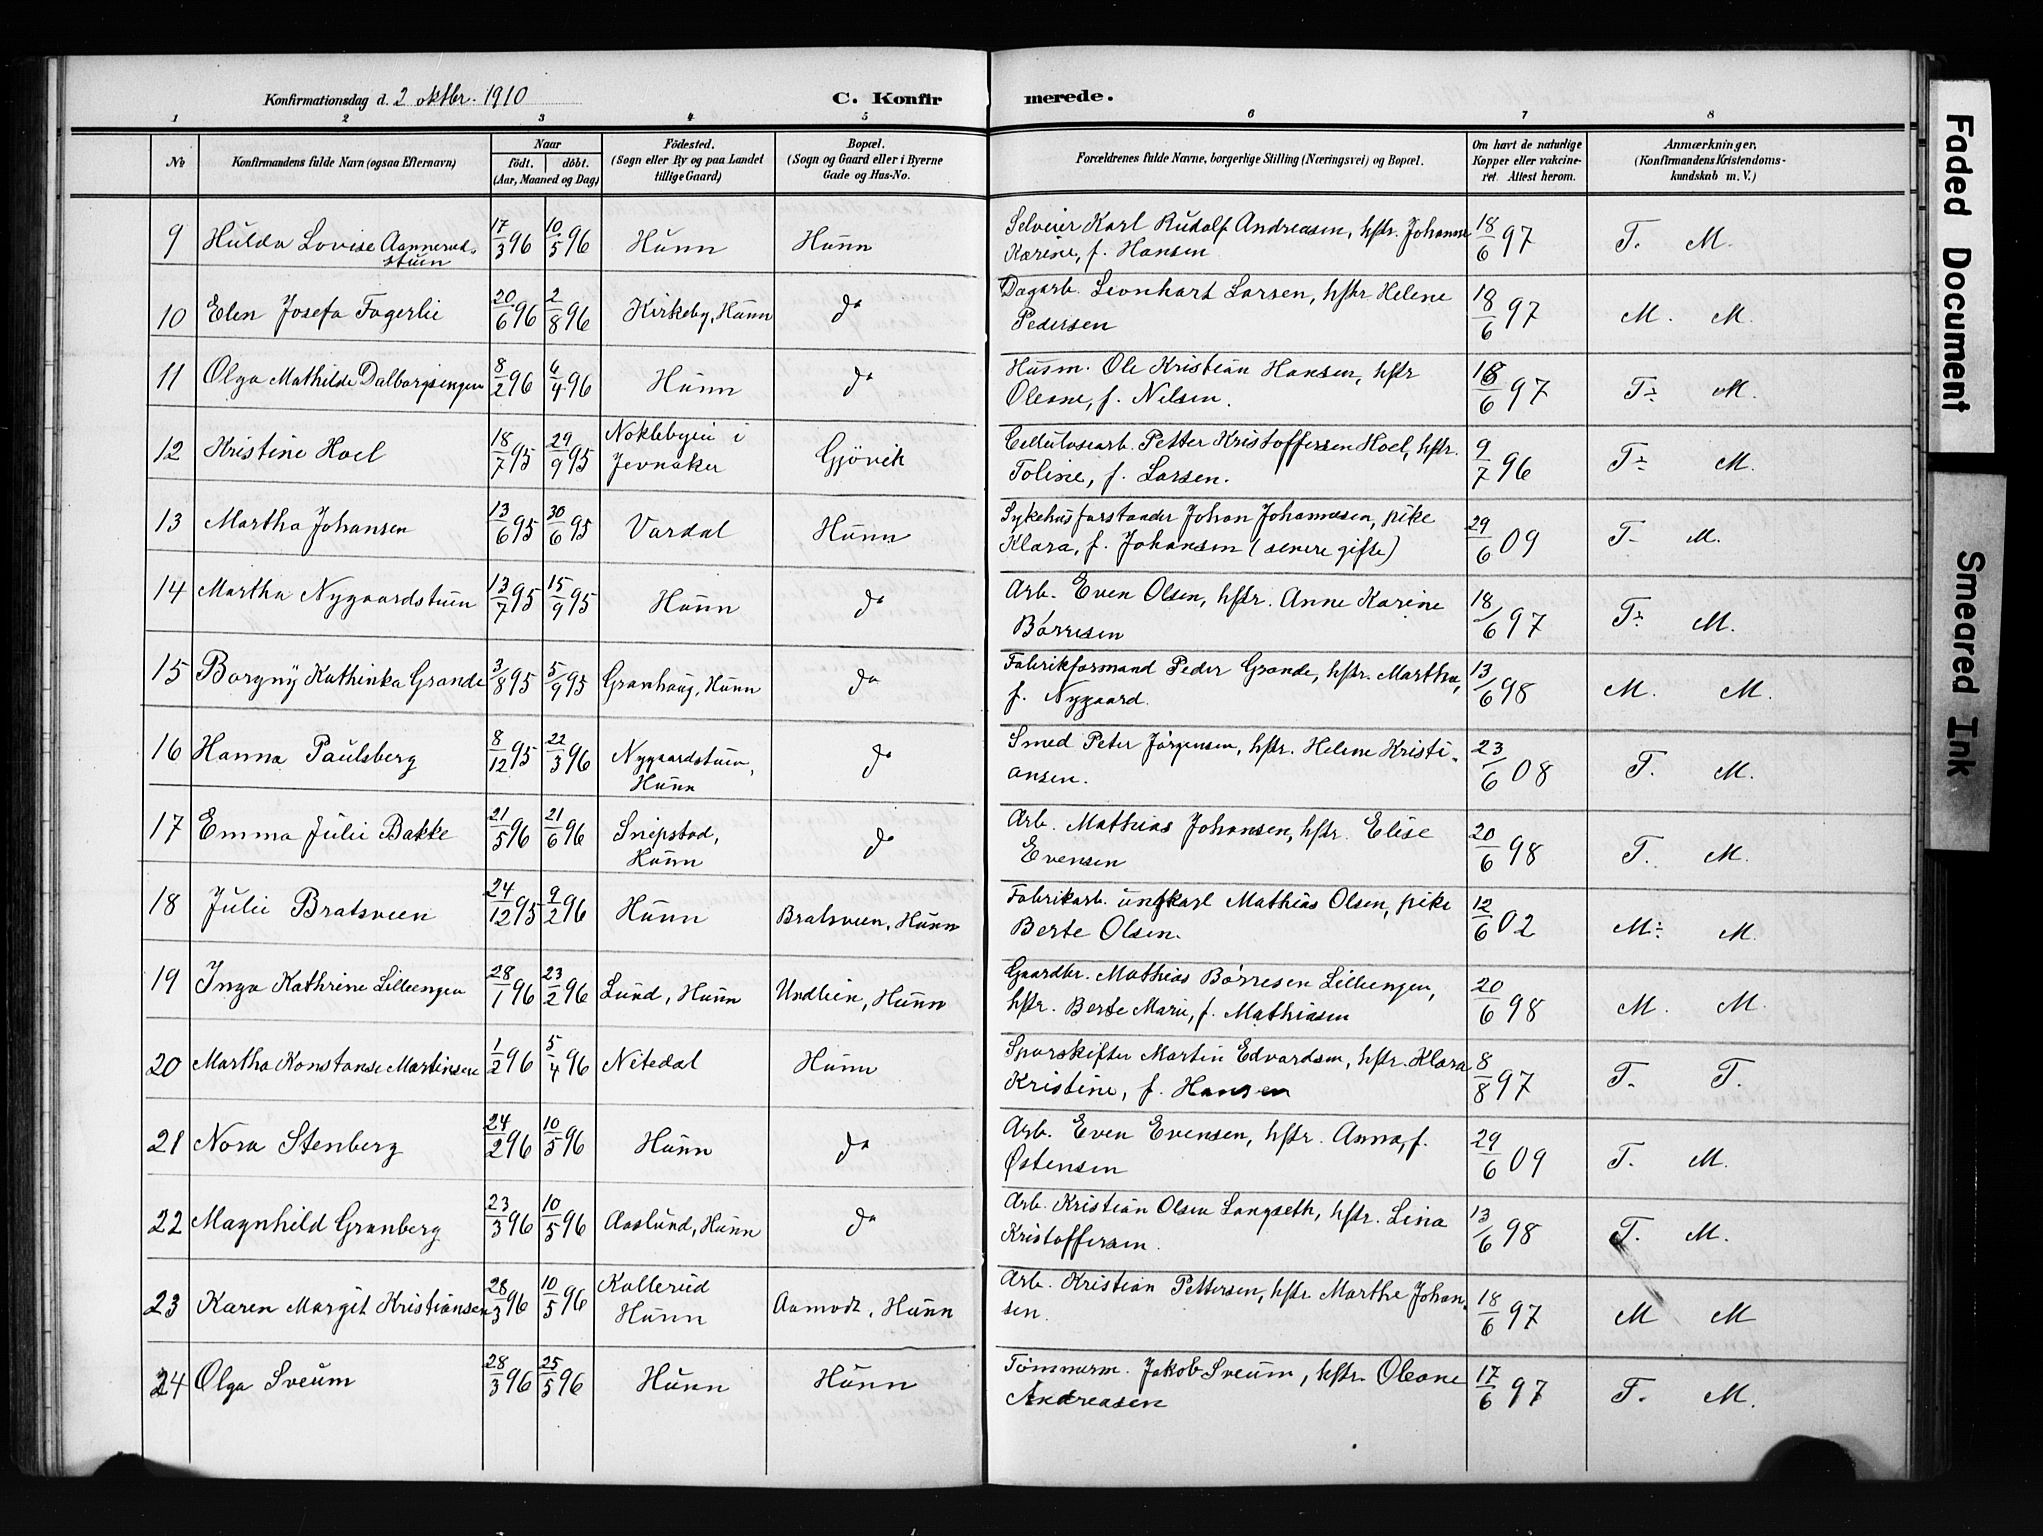 Konfirmationsdag d. 2 oktbr. 1910
C. Konfir merede.
1 2 3 4 5 6 7 8
No
Konfirmandens fulde Navn (ogsaa Efternavn)
Naar
födt. döbt.
(Aar, Maaned og Dag)
Födested.
(Sogn eller By og paa Landet
tillige Gaard)
Bopæl.
(Sogn og Gaard eller i Byerne
Gade og Hus-No.
Forældrenes fulde Navne, borgerlige Stilling (Næringsvei) og Bopæl.
Om havt de naturlige
Kopper eller vakcine-
ret. Attest herom.
Anmærkninger.
(Konfirmandens Kristendoms-
kundskab m. V.)
9 Hulda Lovise Aannerud- 17/3 96 10/5 96 Hunn Hunn Selveier Karl Rudolf Andreasen, hstr. Johanne 18/6 97 T. M.
stuen Karine, f. Hansen
10 Elen Josefa Fagerlie 20/6 96 2/8 96 Kirkeby, Hunn do Dagarb. Leonhart Larsen, hstr Helene 18/6 97 M. M.
Pedersen
11 Olga Mathilde Dalborgsengen 8/2 96 6/4 96 Hunn do Husm. Ole Kristian Hansen, hstr 18/6 97 T÷ M.
Oleane, f. Nilsen.
12 Kristine Hoel 18/7 95 29/9 95 Noklebyeie i Gjövik Cellulosearb. Petter Kristoffersen Hoel, hstr. 9/7 96 T÷ M.
Jevnaker Toline, f. Larsen.
13 Martha Johansen 13/6 95 30/6 95 Vardal Hunn Sykehusforstander Johan Johannesen, pike 29/6 09 T- M.
Klara, f. Johansen (senere gifte)
14 Martha Nygaardstuen 13/7 95 15/9 95 Hunn do Arb. Even Olsen, hstr. Anne Karine 18/6 97 T÷ M.
Børresen
15 Borgny Kathinka Grande 3/8 95 5/9 95 Granhaug, Hunn do Fabrikformand Peder Grande, hstr. Martha, 13/6 98 M. M.
f. Nygaard.
16 Hanna Paulsberg 8/12 95 22/3 96 Nygaardstuen, do Smed Peter Jørgensen, hstr. Helene Kristi- 23/6 08 T. M.
Hunn ansen.
17 Emma Julie Bakke 21/5 96 21/6 96 Snipstad, do Arb. Mathias Johansen, hstr. Elise 20/6 98 T. M.
Hunn Evensen
18 Julie Bratsveen 24/12 95 9/2 96 Hunn Bratsveen, Hunn Fabrikarb. ungkarl Mathias Olsen, pike 12/6 02 M÷ M.
Berte Olsen.
19 Inga Kathrine Lilleengen 28/1 96 23/2 96 Lund, Hunn Undlien, Hunn Gaardbr. Mathias Børresen Lilleengen, 20/6 98 M. M.
hstr. Berte Marie, f. Mathiasen
20 Martha Konstanse Martinsen 1/2 96 5/4 96 Nitedal Hunn Sporskifter Martin Edvardsen, hstr. Klara 8/8 97 T. T.
Kristine, f. Hansen
21 Nora Stenberg 24/2 96 10/5 96 Hunn do Arb. Even Evensen, hstr. Anna, f. 29/6 09 T. M.
Østensen
22 Magnhild Granberg 23/3 96 10/5 96 Aaslund, Hunn do Arb. Kristian Olsen Langseth, hstr. Lina 13/6 98 T. M.
Kristoffersen.
23 Karen Margit Kristiansen 28/3 96 10/5 96 Kallerud Aamodt, Hunn Arb. Kristian Pettersen, hstr Marthe Johan- 18/6 97 M M
Hunn sen.
24 Olga Sveum 28/3 96 25/5 96 Hunn Hunn Tømmerm. Jakob Sveum, hstr. Oleane 17/6 97 T. M.
Andreasen
Faded Document
Smeared Ink